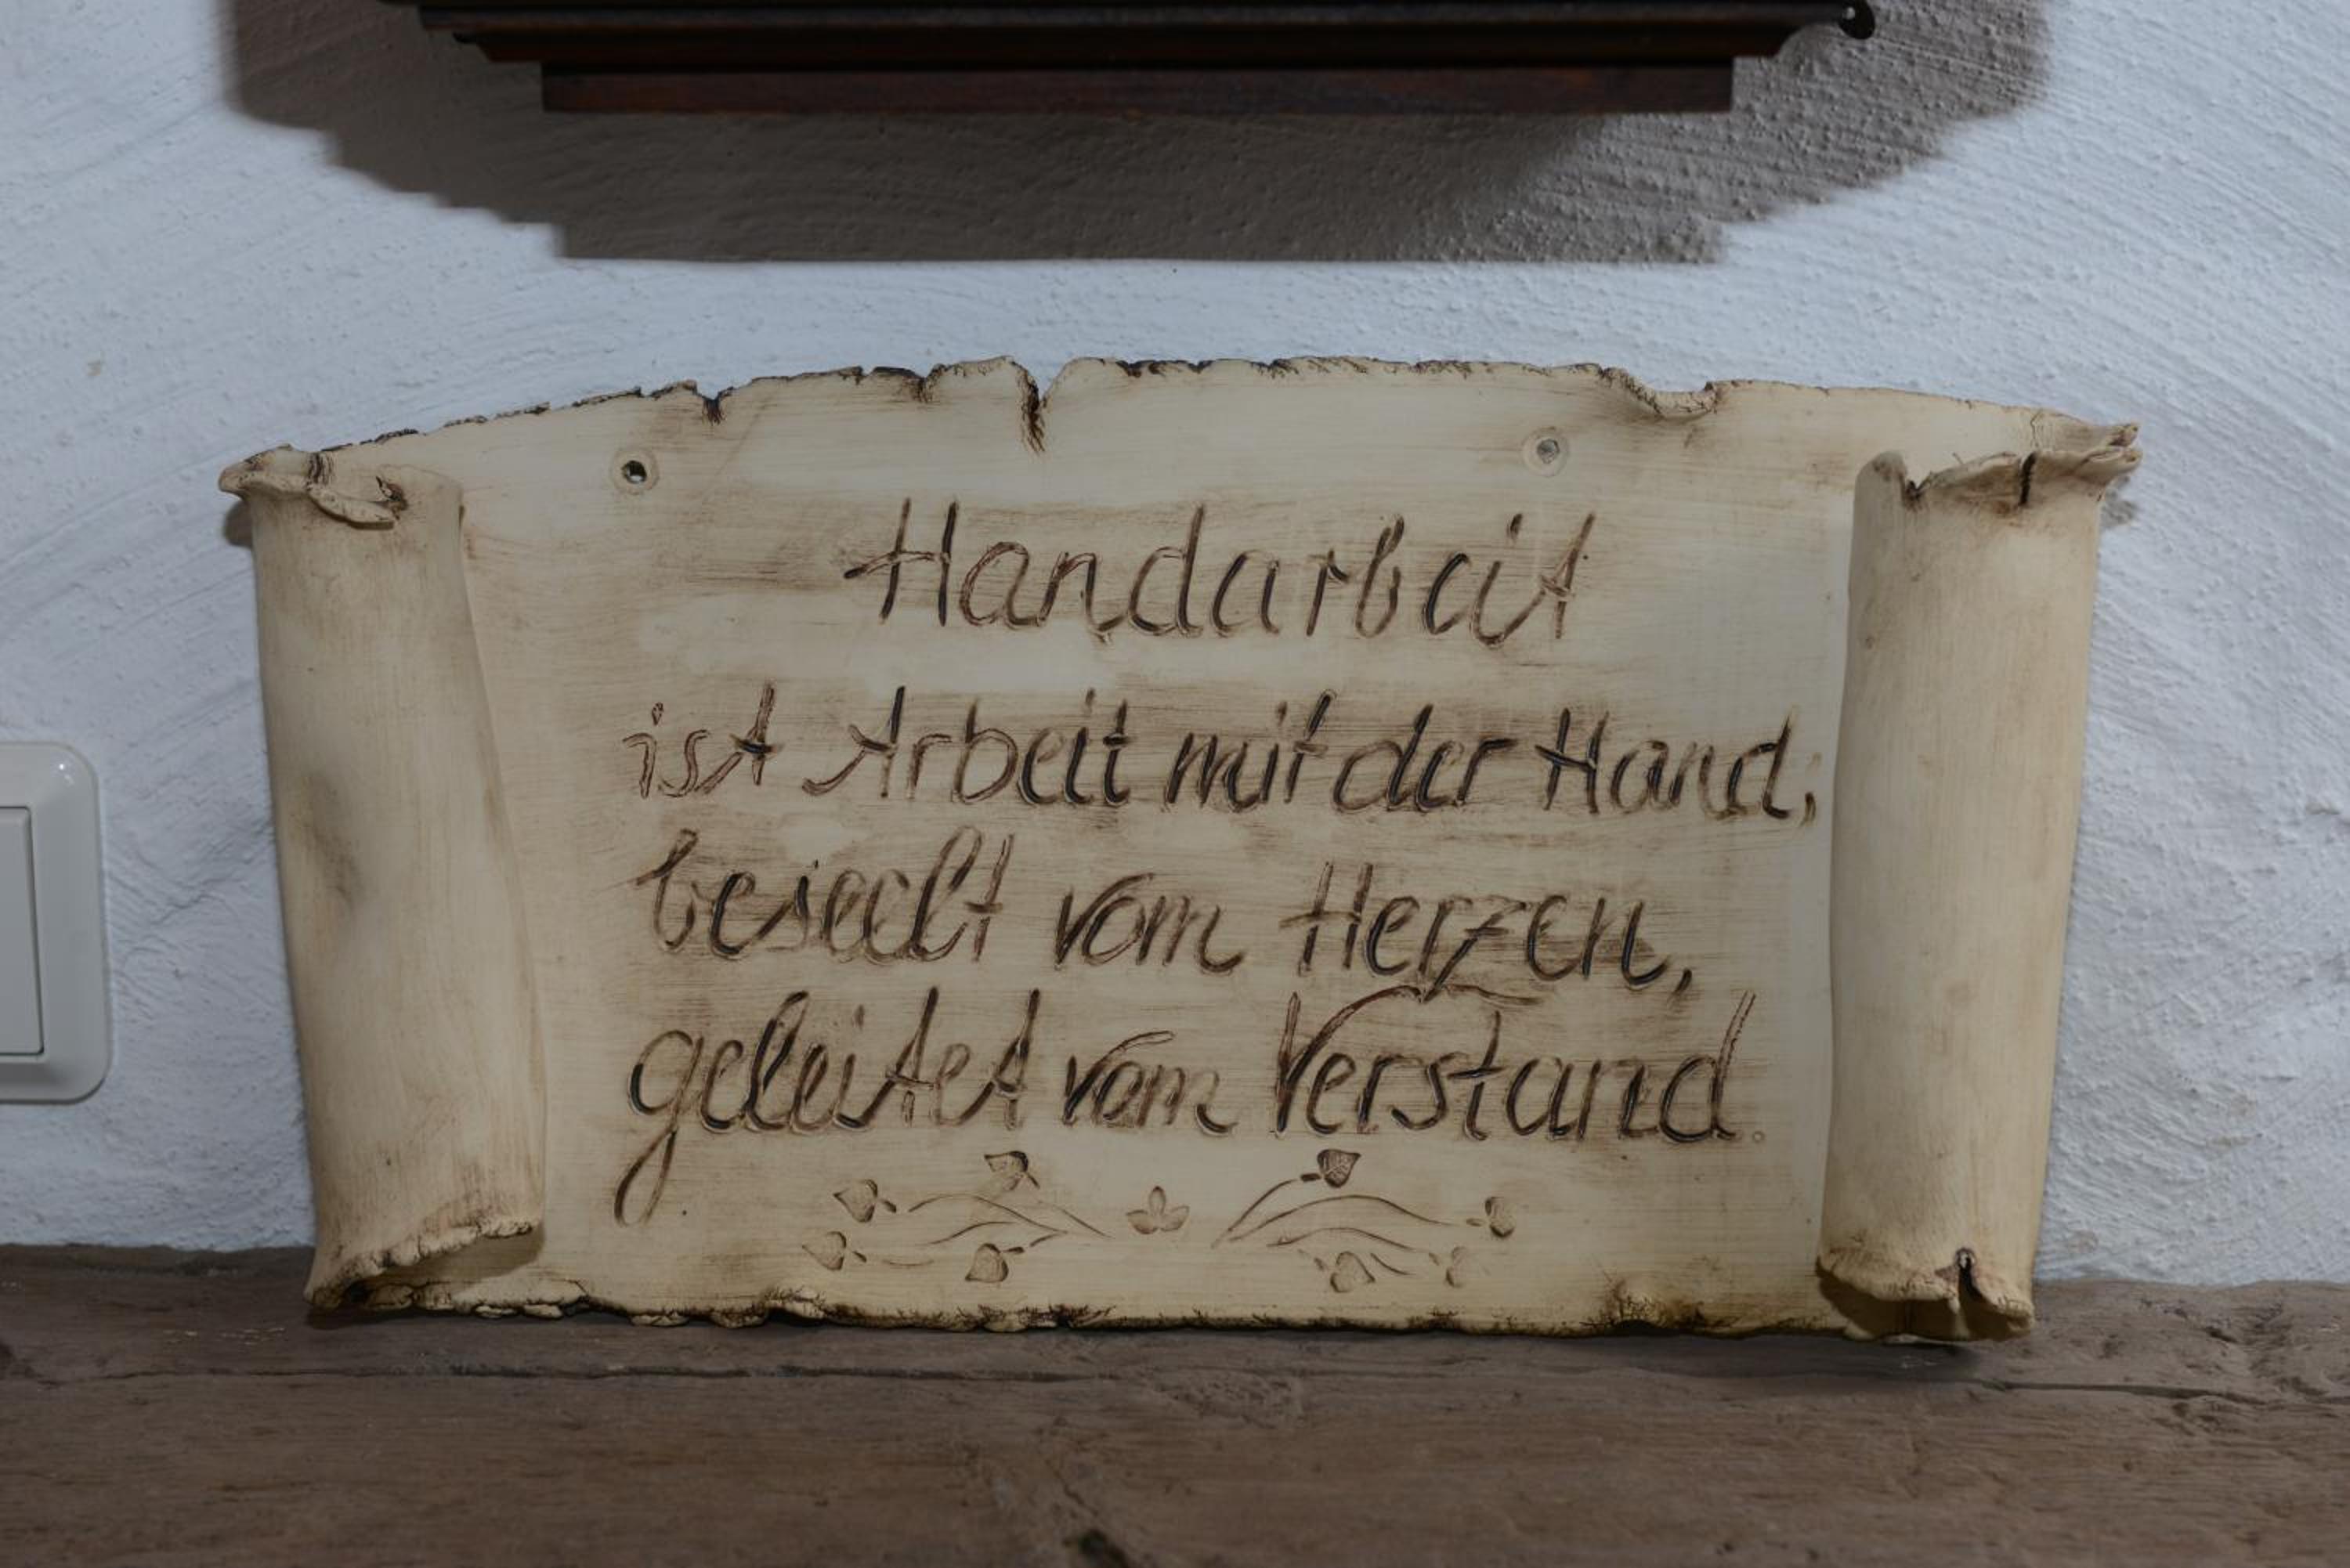 Handarbeit
ist Arbeit mit der Hand,
beseelt vom Herzen,
geleitet vom Verstand.